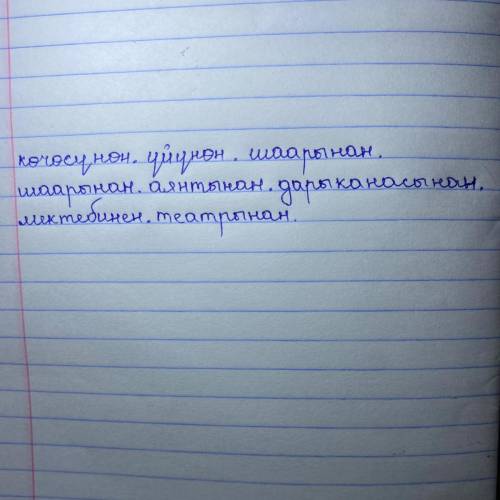 көчөсүнөн. үйүнөн. шаарынан.
шаарынан. аянтынан. дарыканасынан.
мектебинен. театрынан.